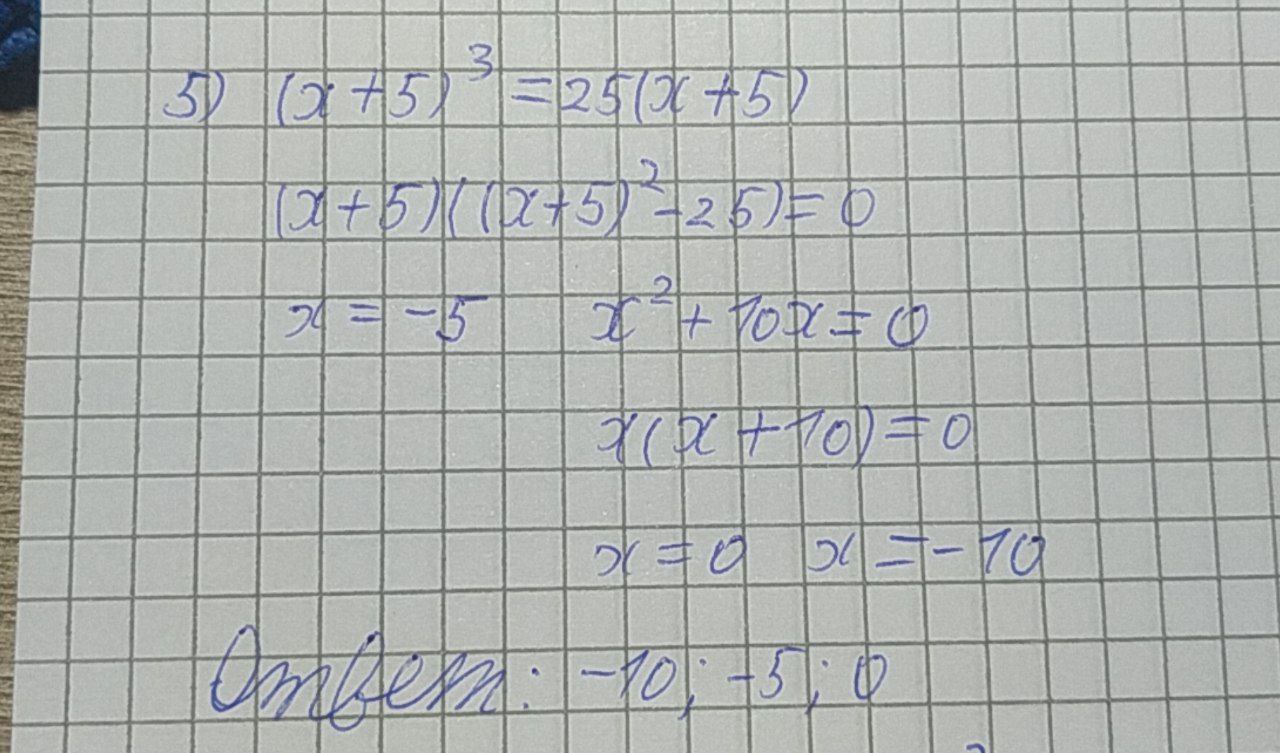 5) (x+5)³ = 25(x+5)
(x+5)((x+5)²-25)=0
x = -5 x²+10x=0
x(x+10)=0
x=0 x=-10
Ответ: -10; -5; 0